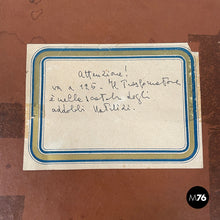 Attenzione!
va a 125 - Il Trasformatore
è nella scatola degli
addobbi Natalizi.
M76